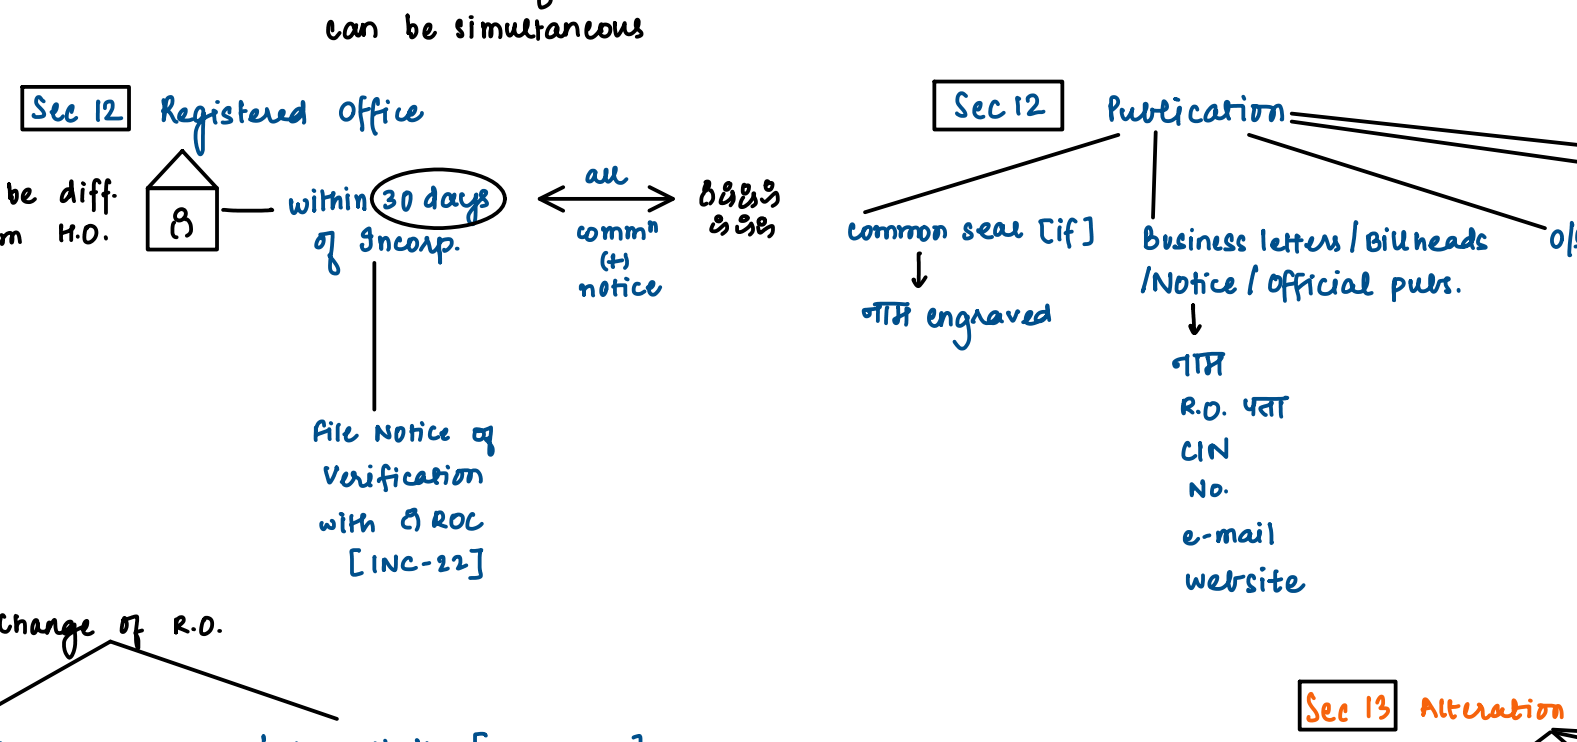 can be simultaneous
Sec 12 Registered Office
be diff.
H.O.
within 30 days
of Incorp.
all
commⁿ
(+)
notice
File Notice of
Verification
with ROC
[INC-22]
Change of R.O.
Sec 12 Publication
common seal [if]
नाम engraved
Business letters / Billheads
/Notice / Official pubs.
नाम
R.O. पता
CIN
No.
e-mail
website
Sec 13 Alteration